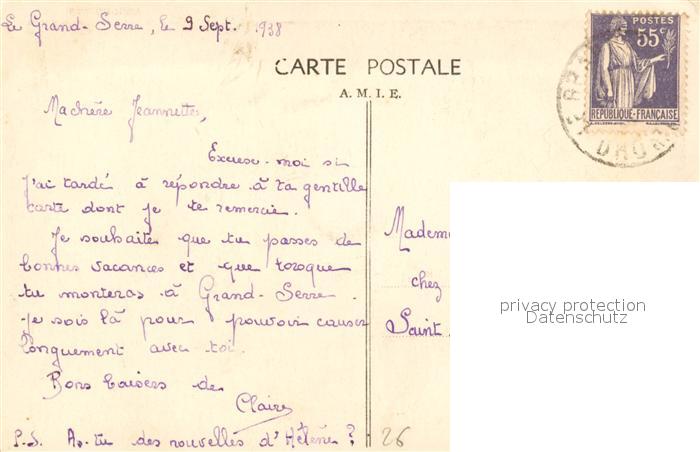 Le Grand-Serre, le 9 Sept. 1938
CARTE POSTALE
A. M. I. E.
POSTES
55c
RÉPUBLIQUE-FRANÇAISE
DRÔME
Ma chère Jeannette,
Excuse-moi si
j'ai tardé à répondre à ta gentille
carte dont je te remercie.
Je souhaite que tu passes de
bonnes vacances et que lorsque
tu monteras à Grand-Serre
je sois là pour pouvoir causer
longuement avec toi.
Bons baisers de
Claire
P.S. As-tu des nouvelles d'Hélène ?
Madem
chez
Saint
26
privacy protection
Datenschutz